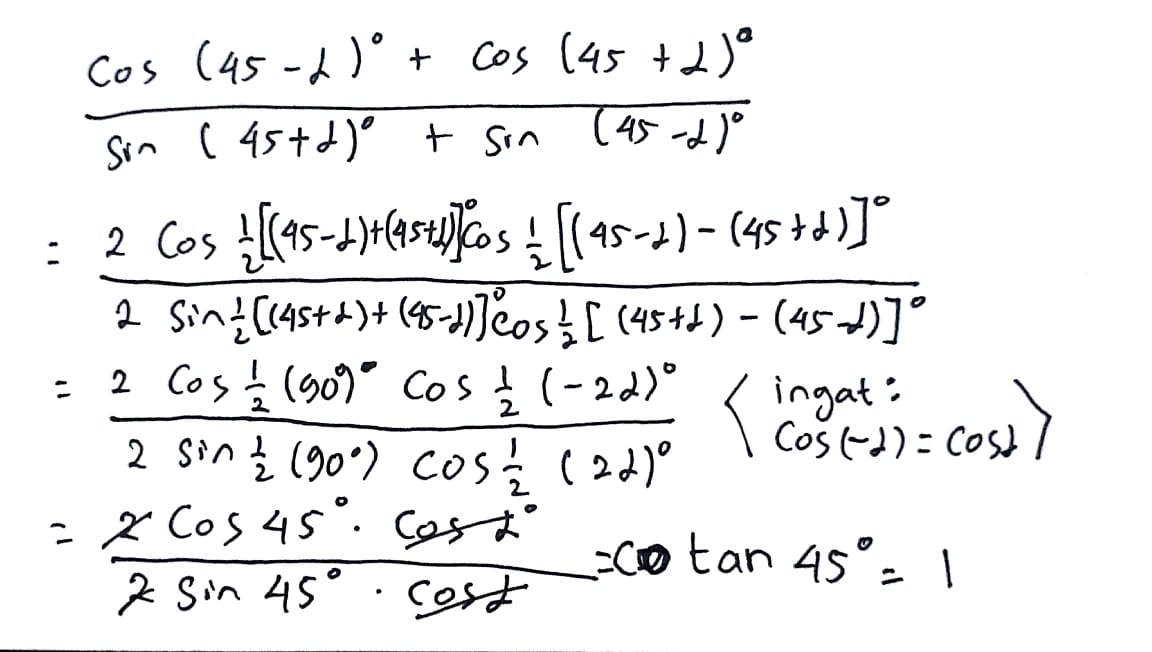 Cos (45 - α)° + Cos (45 + α)°
Sin (45 + α)° + Sin (45 - α)°
= 2 Cos ½[(45-α)+(45+α)]° Cos ½ [(45-α) - (45+α)]°
2 Sin ½[(45+α)+(45-α)]° Cos ½ [(45+α) - (45-α)]°
= 2 Cos ½ (90)° Cos ½ (-2α)° < ingat :
Cos (-α) = Cos α >
2 Sin ½ (90°) Cos ½ (2α)°
= 2 Cos 45° . Cos α°
2 Sin 45° . Cos α
= Co tan 45° = 1